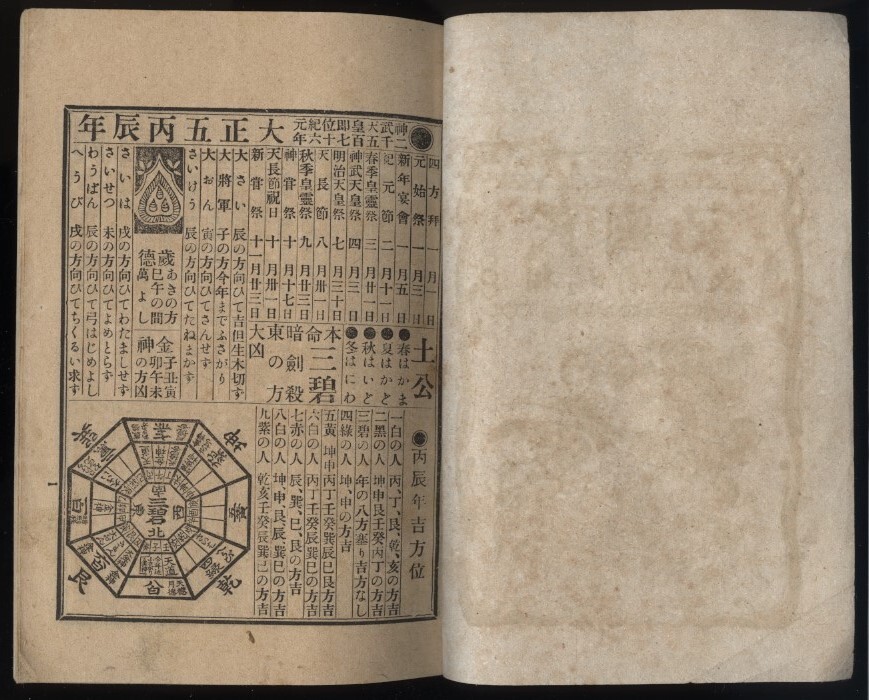 大正五丙辰年
神武天皇即位紀元
二千五百七十六年
四方拜 一月一日
元始祭 一月三日
新年宴會 一月五日
紀元節 二月十一日
春季皇靈祭 三月廿一日
神武天皇祭 四月三日
明治天皇祭 七月三十日
天長節 八月卅一日
秋季皇靈祭 九月廿三日
神嘗祭 十月十七日
天長節祝日 十月卅一日
新嘗祭 十一月廿三日
大さい 辰の方向ひて吉但生木切ず
大將軍 子の方今年までふさがり
大おん 寅の方向ひてさんせず
さいけう 辰の方向ひてたねまかず
歲德
あきの方
巳午の間
萬よし
金神
子丑寅
卯午未
の方凶
さいは 戌の方向ひてわたましせず
さいせつ 未の方向ひてよめとらず
わうばん 辰の方向ひて弓はじめよし
へうび 戌の方向ひてちくるい求ず
土公
春はかま
夏はかど
秋はいど
冬はにわ
本命 三碧
暗劍殺
東の方
大凶
丙辰年吉方位
一白の人 丙、丁、艮、乾、亥の方吉
二黒の人 坤申艮壬癸丙丁の方吉
三碧の人 年の八方塞り吉方なし
四綠の人 坤、申の方吉
五黃の人 坤申丙丁壬癸辰巽巳艮方吉
六白の人 丙丁壬癸辰巽巳の方吉
七赤の人 辰、巽、巳、艮の方吉
八白の人 坤、申、艮、辰巽巳の方吉
九紫の人 乾亥壬癸辰巽巳の方吉
坤
乾
艮
南
西
北
三碧
一